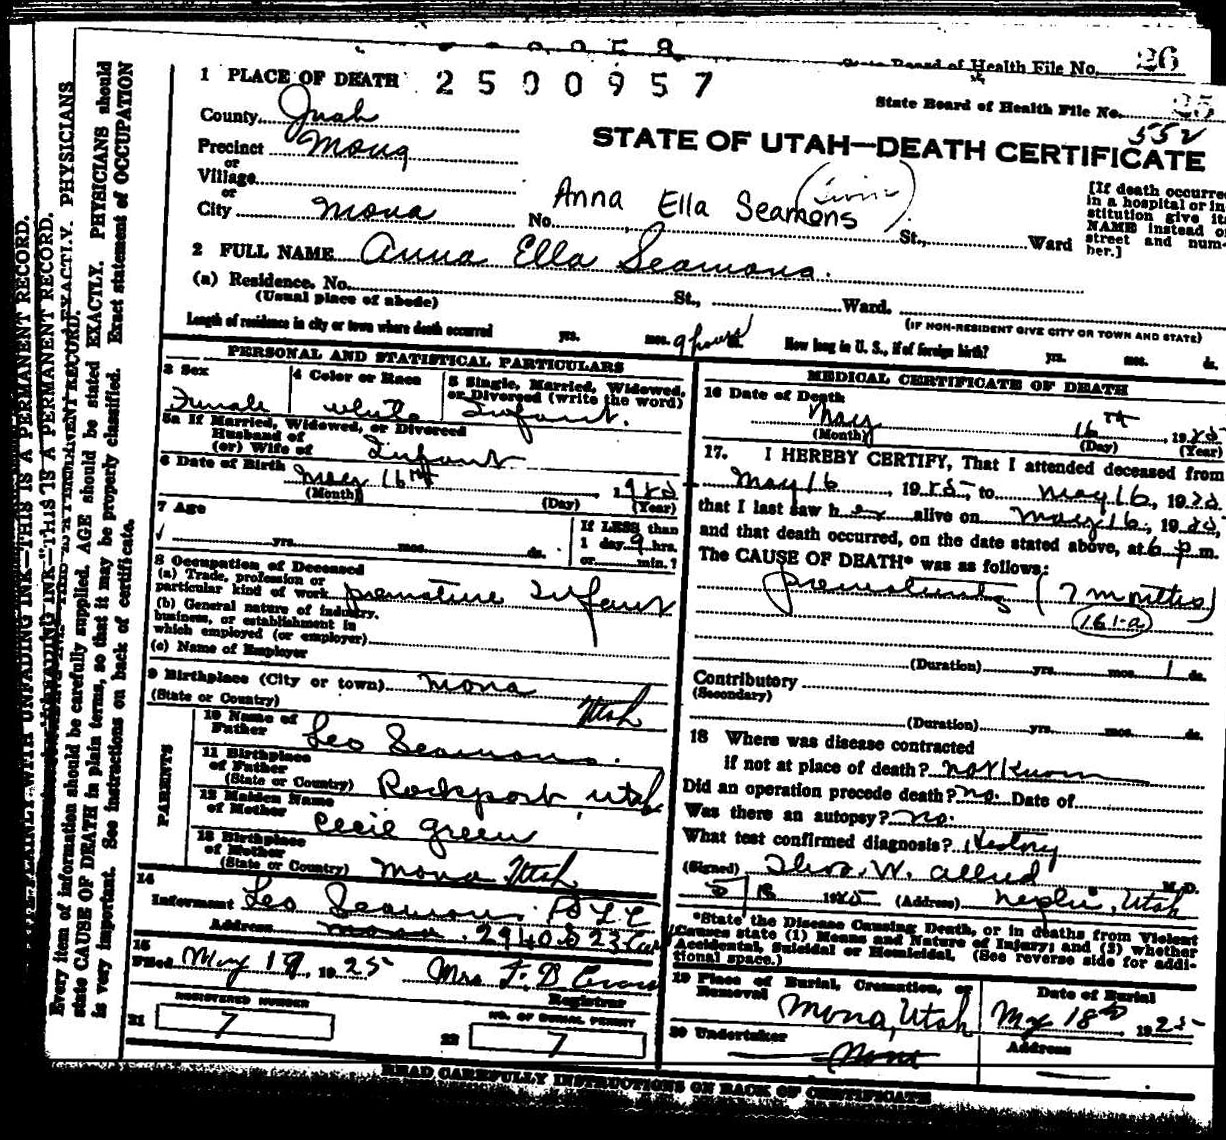 State Board of Health File No. 26
1 PLACE OF DEATH 2500957
State Board of Health File No. 25
552
County Juab
STATE OF UTAH—DEATH CERTIFICATE
Precinct Mona
or
Village
or
City Mona No. Anna Ella Seamons St., Ward
[If death occurred in a hospital or institution give its NAME instead of street and number.]
2 FULL NAME Anna Ella Seamons.
(a) Residence. No. St., Ward.
(Usual place of abode)
(IF NON-RESIDENT GIVE CITY OR TOWN AND STATE)
Length of residence in city or town where death occurred yrs. mos. 9 hours ds. How long in U. S., if of foreign birth? yrs. mos. ds.
PERSONAL AND STATISTICAL PARTICULARS
3 Sex
Female
4 Color or Race
white
5 Single, Married, Widowed, or Divorced (write the word)
Infant.
5a If Married, Widowed, or Divorced
Husband of
(or) Wife of Infant
6 Date of Birth May 16th 1925
(Month) (Day) (Year)
7 Age
yrs. mos. ds.
If LESS than
1 day 9 hrs.
or min.?
8 Occupation of Deceased
(a) Trade, profession or
particular kind of work premature Infant
(b) General nature of industry,
business, or establishment in
which employed (or employer)
(c) Name of Employer
9 Birthplace (City or town) Mona
(State or Country) Utah
PARENTS
10 Name of
Father Leo Seamons.
11 Birthplace
of Father
(State or Country) Rockport Utah
12 Maiden Name
of Mother Cecil Green
13 Birthplace
of Mother
(State or Country) Mona Utah
14
Informant Leo Seamons
Address Mona
15
Filed May 19 1925 Mrs F. B
Registrar
REGISTERED NUMBER
21 7
NO. OF BURIAL PERMIT
22 7
MEDICAL CERTIFICATE OF DEATH
16 Date of Death
May 16th, 1925
(Month) (Day) (Year)
17. I HEREBY CERTIFY, That I attended deceased from
May 16, 1925, to May 16, 1925
that I last saw her alive on May 16, 1925,
and that death occurred, on the date stated above, at 6 p.m.
The CAUSE OF DEATH* was as follows:
prematurity (7 months)
161-a
(Duration) yrs. mos. 1 ds.
Contributory
(Secondary)
(Duration) yrs. mos. ds.
18 Where was disease contracted
if not at place of death? not known
Did an operation precede death? no. Date of
Was there an autopsy? no.
What test confirmed diagnosis? History
(Signed) Thos. W. Allred M.D.
5/18 1925 (Address) Nephi, Utah
*State the Disease Causing Death, or in deaths from Violent
Causes state (1) Means and Nature of Injury; and (2) whether
Accidental, Suicidal or Homicidal. (See reverse side for additional space.)
19 Place of Burial, Cremation, or
Removal Mona, Utah
Date of Burial
May 18th 1925
20 Undertaker
None
Address
READ CAREFULLY INSTRUCTIONS ON BACK OF CERTIFICATE
WRITE PLAINLY WITH UNFADING INK—THIS IS A PERMANENT RECORD.
Every item of information should be carefully supplied. AGE should be stated EXACTLY. PHYSICIANS should
state CAUSE OF DEATH in plain terms, so that it may be properly classified. Exact statement of OCCUPATION
is very important. See instructions on back of certificate.